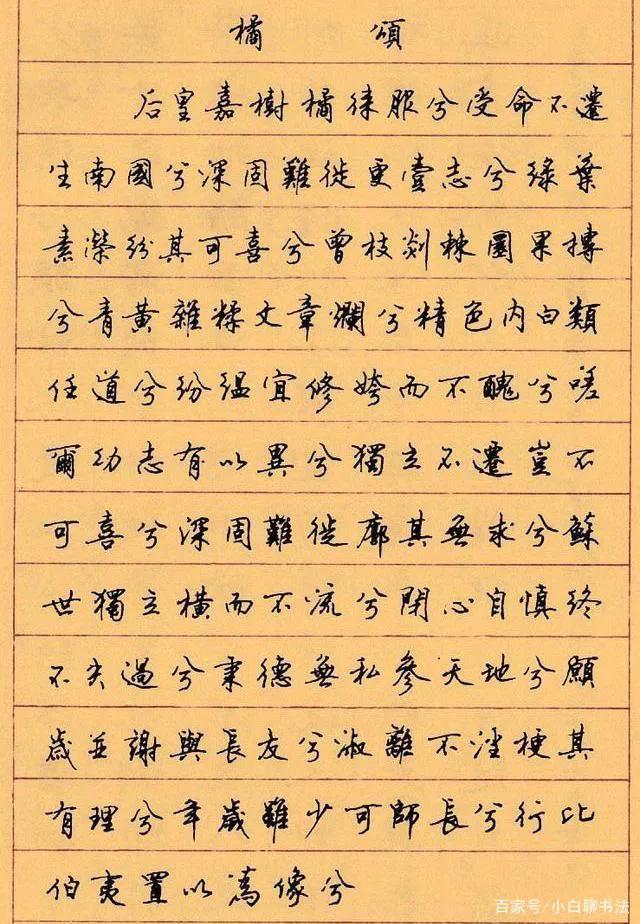 橘頌
后皇嘉樹橘徠服兮受命不遷
生南國兮深固難徙更壹志兮綠葉
素榮紛其可喜兮曾枝剡棘圜果摶
兮青黃雜糅文章爛兮精色內白類
任道兮紛縕宜修姱而不醜兮嗟
爾幼志有以異兮獨立不遷豈不
可喜兮深固難徙廓其無求兮蘇
世獨立橫而不流兮閉心自慎終
不失過兮秉德無私參天地兮願
歲並謝與長友兮淑離不淫梗其
有理兮年歲雖少可師長兮行比
伯夷置以為像兮
百家号/小白聊书法